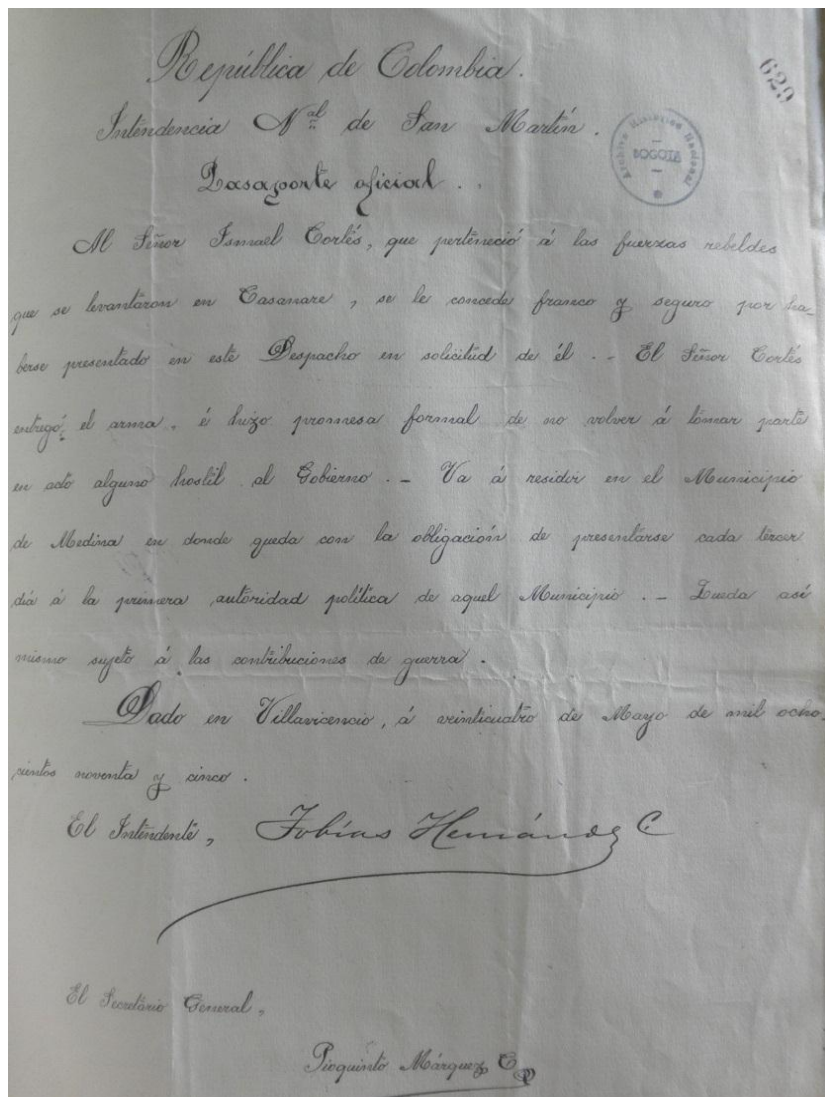 República de Colombia.
629
Intendencia Nal. de San Martín.
Archivo Histórico Nacional
BOGOTA
Pasaporte oficial..
Al Señor Ismael Cortés, que perteneció á las fuerzas rebeldes
que se levantaron en Casanare, se le concede franco y seguro por ha-
berse presentado en este Despacho en solicitud de él. - El Señor Cortés
entregó el arma, é hizo promesa formal de no volver á tomar parte
en acto alguno hostil al Gobierno. - Va á residir en el Municipio
de Medina en donde queda con la obligación de presentarse cada tercer
día á la primera autoridad política de aquel Municipio. - Queda así
mismo sujeto á las contribuciones de guerra.
Dado en Villavicencio, á veinticuatro de Mayo de mil ocho-
cientos noventa y cinco.
El Intendente, Tobías Hernández C.
El Secretario General,
Pioquinto Márquez C.